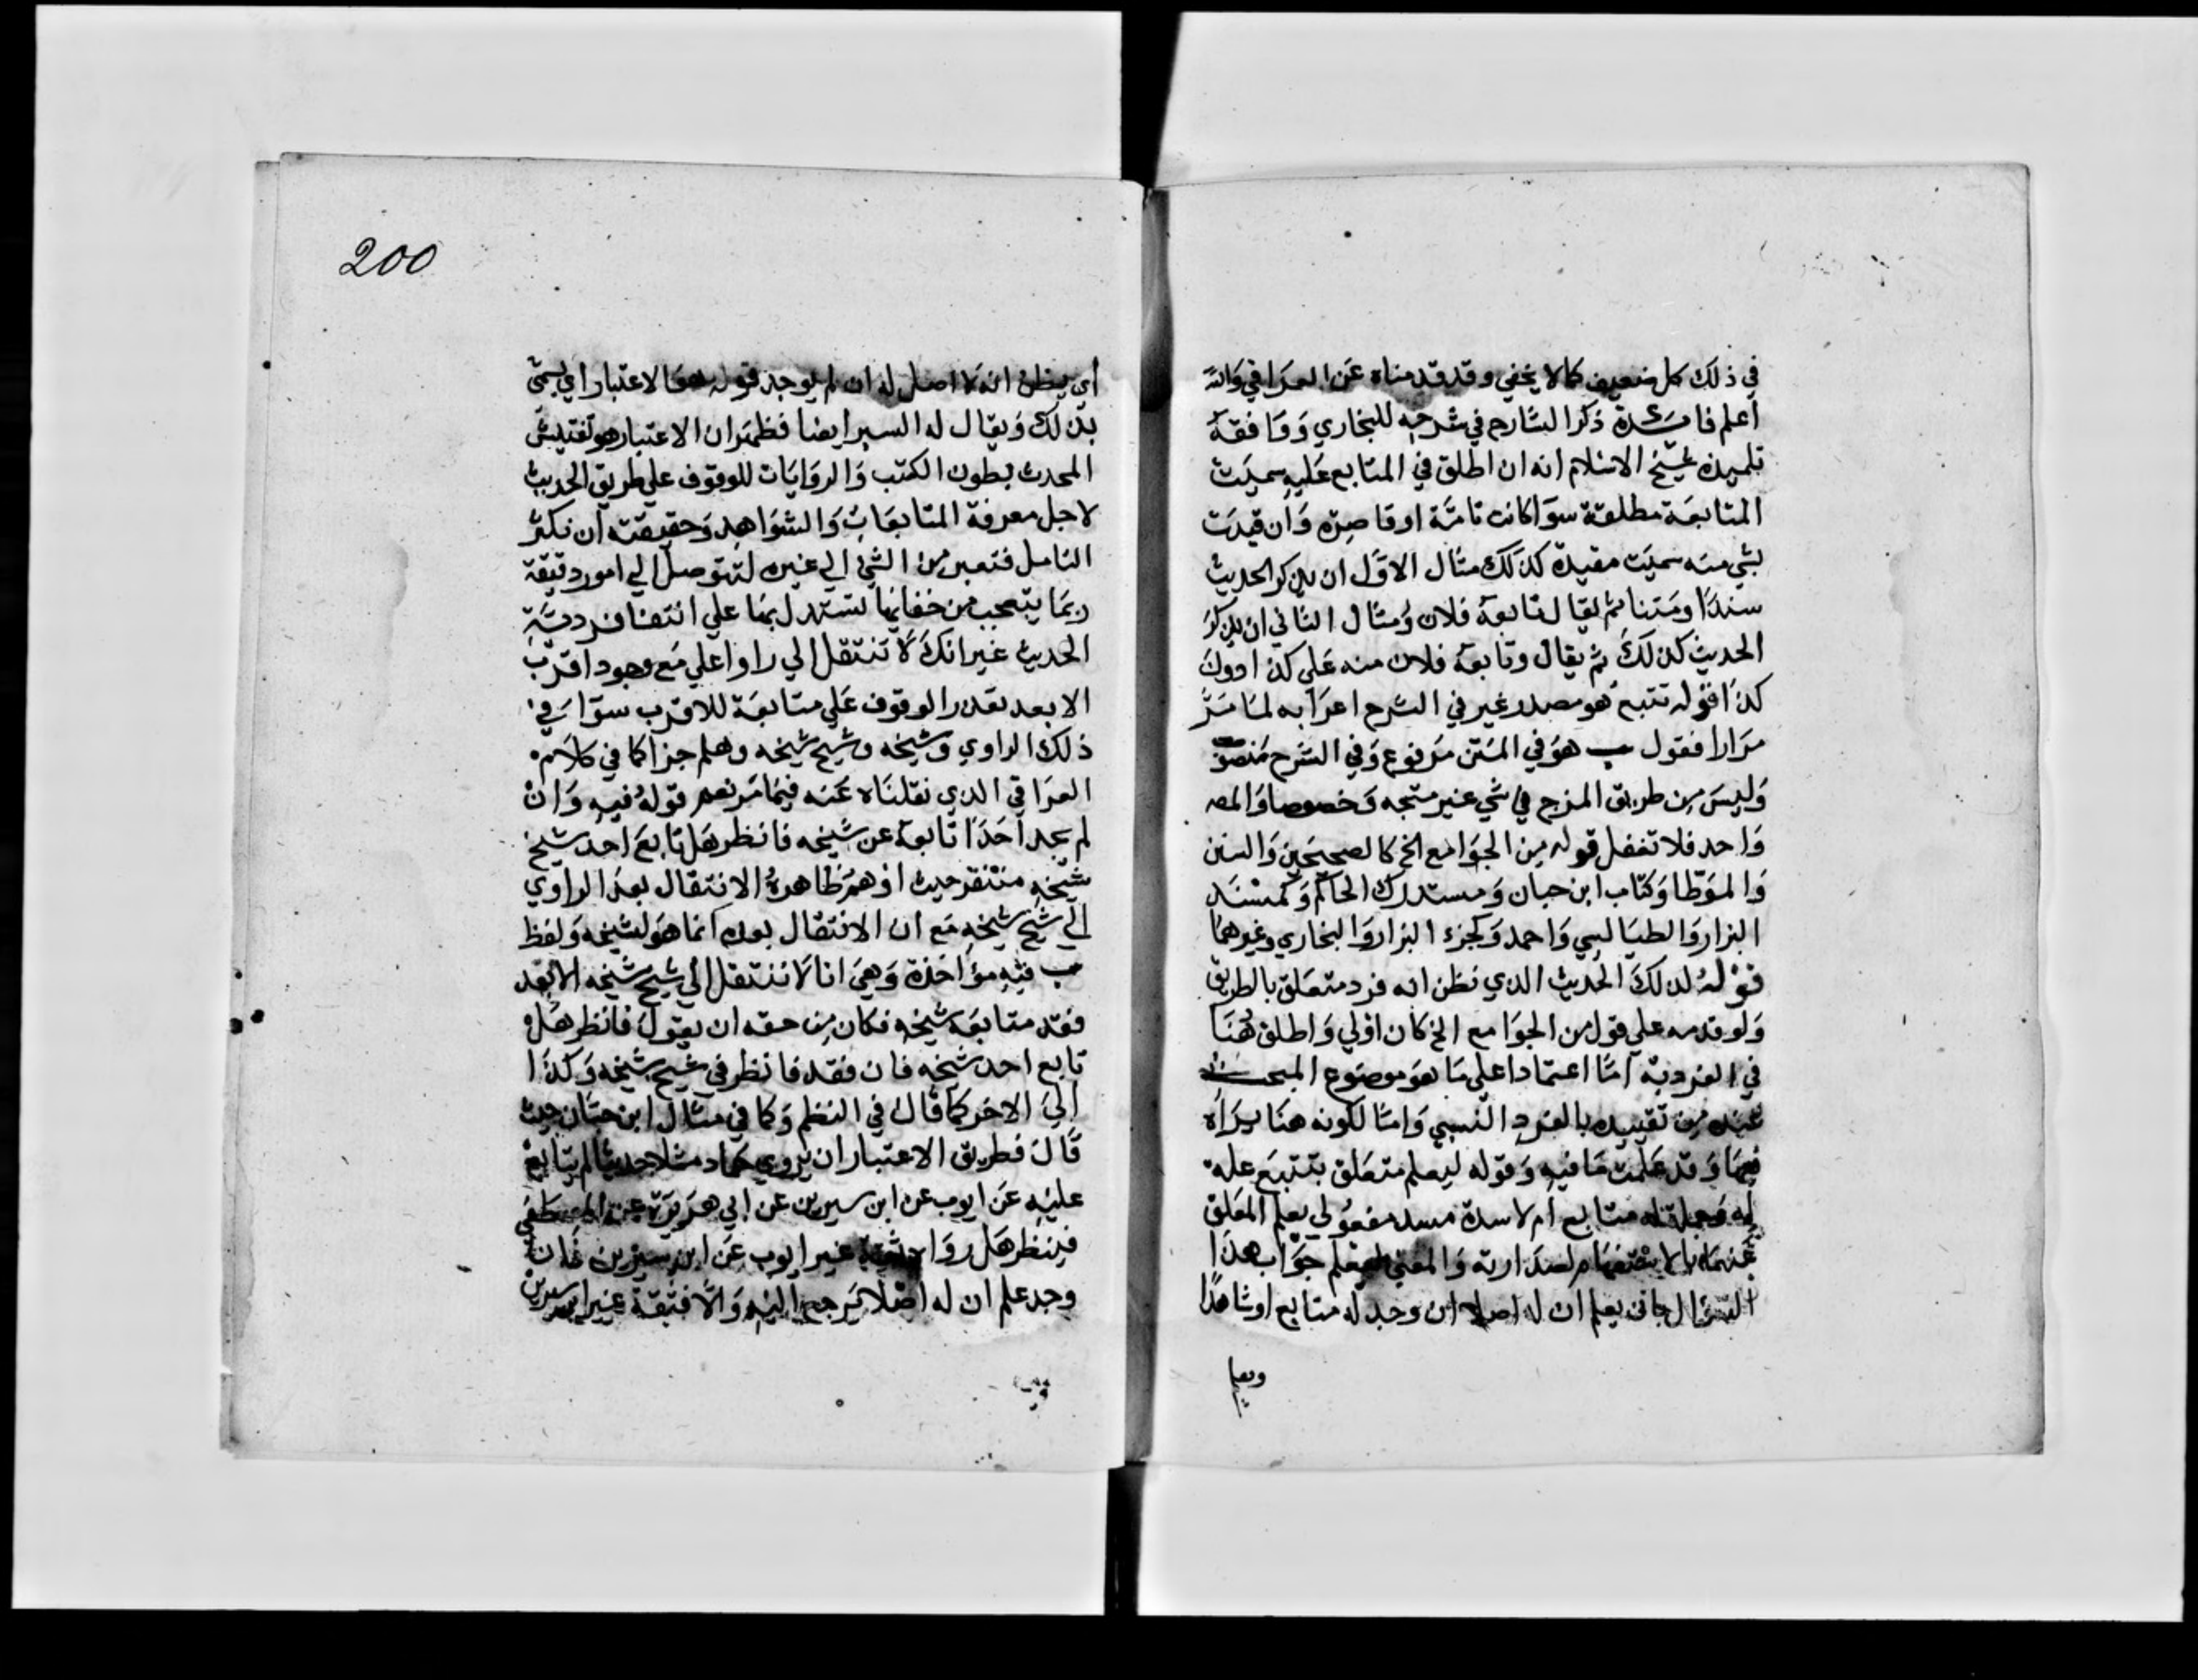 في ذلك كل ضعيف كما لا يخفي وقد قدمناه عن العراقي والله
أعلم فائدة ذكر الشارح في شرحه للبخاري ووافقه
تلميذه شيخ الاسلام انه ان اطلق في المتابع عليه سميت
المتابعة مطلقة سوا كانت تامة او قاصره وان قيدت
بشي منه سميت مقيدة كذلك مثال الاول ان يذكر الحديث
سندا ومتنا ثم يقال تابعه فلان ومثال الثاني ان يذكر
الحديث كذلك ثم يقال وتابعه فلان منه علي كذا دون
كذا قوله تتبع هو مصدر غير في الشرح اعرابه لما مر
مرارا فقول ب هو في المتن مرفوع وفي الشرح منصو
وليس من طريق المزج في شي غير متجه وخصوصا والمص
واحد فلا تغفل قوله من الجوامع الخ كالصحيحين والسنن
والموطا وكتاب ابن حبان ومستدرك الحاكم وكمسند
البزار والطيالسي واحمد وكجزء البزار والبخاري وغيرهما
قوله لذلك الحديث الذي نظن انه فرد متعلق بالطريق
ولو قدمه علي قول من الجوامع الخ كان اولي واطلق هنا
في الفردية اما اعتمادا علي ما هو موضوع المبحث
عنده من تقييده بالفرد النسبي واما لكونه هنا يراه
فيما وقد علمت ما فيه وقوله ليعلم متعلق بتتبع عله
له وجملة له متابع ام لا سدة مسد مفعولي يعلم المعلق
عنهما بالاستفهام لصدارته والمعني ليعلم جواب هذا
السؤال بان يعلم ان له اصلا ان وجد له متابع او شاهدا
ويعلم
200
أي يظن انه لا اصل له ان لم يوجد قوله هو الاعتبار اي يسمي
بذلك ويقال له السبر ايضا فظهر ان الاعتبار هو تفتيش
المحدث بطون الكتب والروايات للوقوف علي طريق الحديث
لاجل معرفة المتابعات والشواهد وحقيقته ان تكثر
التامل فتعبر من الشي الي غيره لتتوصل الي امور دقيقة
ربما يتعجب من خفائها تستدل بها علي انتفا فردية
الحديث غير انك لا تنتقل الي راو اعلي مع وجود اقرب
الابعد تعذر الوقوف علي متابعة للاقرب سوا في
ذلك الراوي وشيخه وشيخ شيخه وهلم جرا كما في كلام
العراقي الذي نقلناه عنه فيما مر نعم قوله فيه وان
لم تجد احدا تابعه عن شيخه فانظر هل تابع احد شيخ
شيخه منتقد حيث اوهم ظاهره الانتقال بعد الراوي
الي شيخ شيخه مع ان الانتقال بعده انما هو لشيخه ولفظ
ب فيه مؤاخذة وهي انا لا ننتقل الي شيخ شيخه الا بعد
فقد متابعة شيخه فكان من حقه ان يقول فانظر هل
تابع احد شيخه فان فقد فانظر في شيخ شيخه وكذا
الي الاخر كما قال في النظم وكما في مثال ابن حبان حيث
قال فطريق الاعتبار ان يروي حماد مثلا حديثا لم يتابع
عليه عن ايوب عن ابن سيرين عن ابي هريرة عن المصطفي
فينظر هل رواه ثقة غير ايوب عن ابن سيرين فان
وجد علم ان له اصلا يرجع اليه والا فثقة غير ابن سيرين